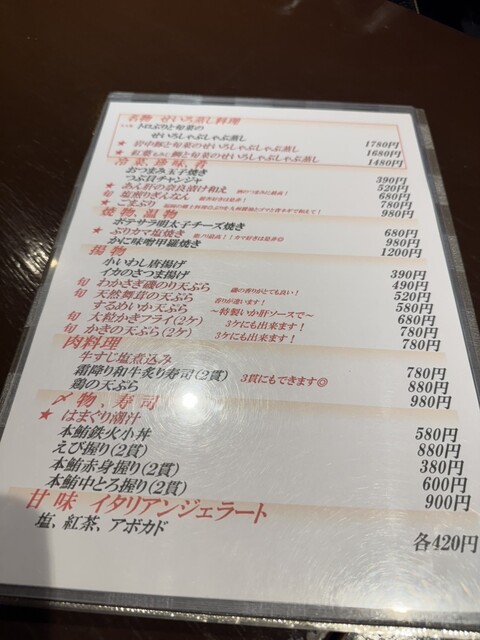 名物 せいろ蒸し料理
トロぶりと旬菜の
せいろしゃぶしゃぶ蒸し 1780円
★ 岩中豚と旬菜のせいろしゃぶしゃぶ蒸し 1680円
★ 紅葉 鯛と旬菜のせいろしゃぶしゃぶ蒸し 1480円
冷菜、珍味、肴
おつまみ玉子焼き 390円
つぶ貝チャンジャ 520円
★ あん肝の奈良漬け和え 680円
旬 塩煎りぎんなん 銀杏好きは是非! 780円
★ ごまぶり 980円
焼物、温物
ポテサラ明太子チーズ焼き 680円
★ ぶりカマ塩焼き 脂が最高!!カマ好きは是非◎ 980円
かに味噌甲羅焼き 1200円
揚物
小いわし唐揚げ 390円
イカのさつま揚げ 490円
旬 わかさぎ磯のり天ぷら 磯の香りがとても良い! 520円
旬 天然舞茸の天ぷら 香りが違います! 580円
するめいか天ぷら ～特製いか肝ソースで～ 680円
旬 大粒かきフライ(2ケ) 3ケにも出来ます! 780円
旬 かきの天ぷら(2ケ) 3ケにも出来ます! 780円
肉料理
牛すじ塩煮込み 780円
霜降り和牛炙り寿司(2貫) 3貫にもできます◎ 880円
鶏の天ぷら 980円
〆物、寿司
★ はまぐり潮汁 580円
本鮪鉄火小丼 880円
えび握り(2貫) 380円
本鮪赤身握り(2貫) 600円
本鮪中とろ握り(2貫) 900円
甘味 イタリアンジェラート
塩、紅茶、アボカド 各420円